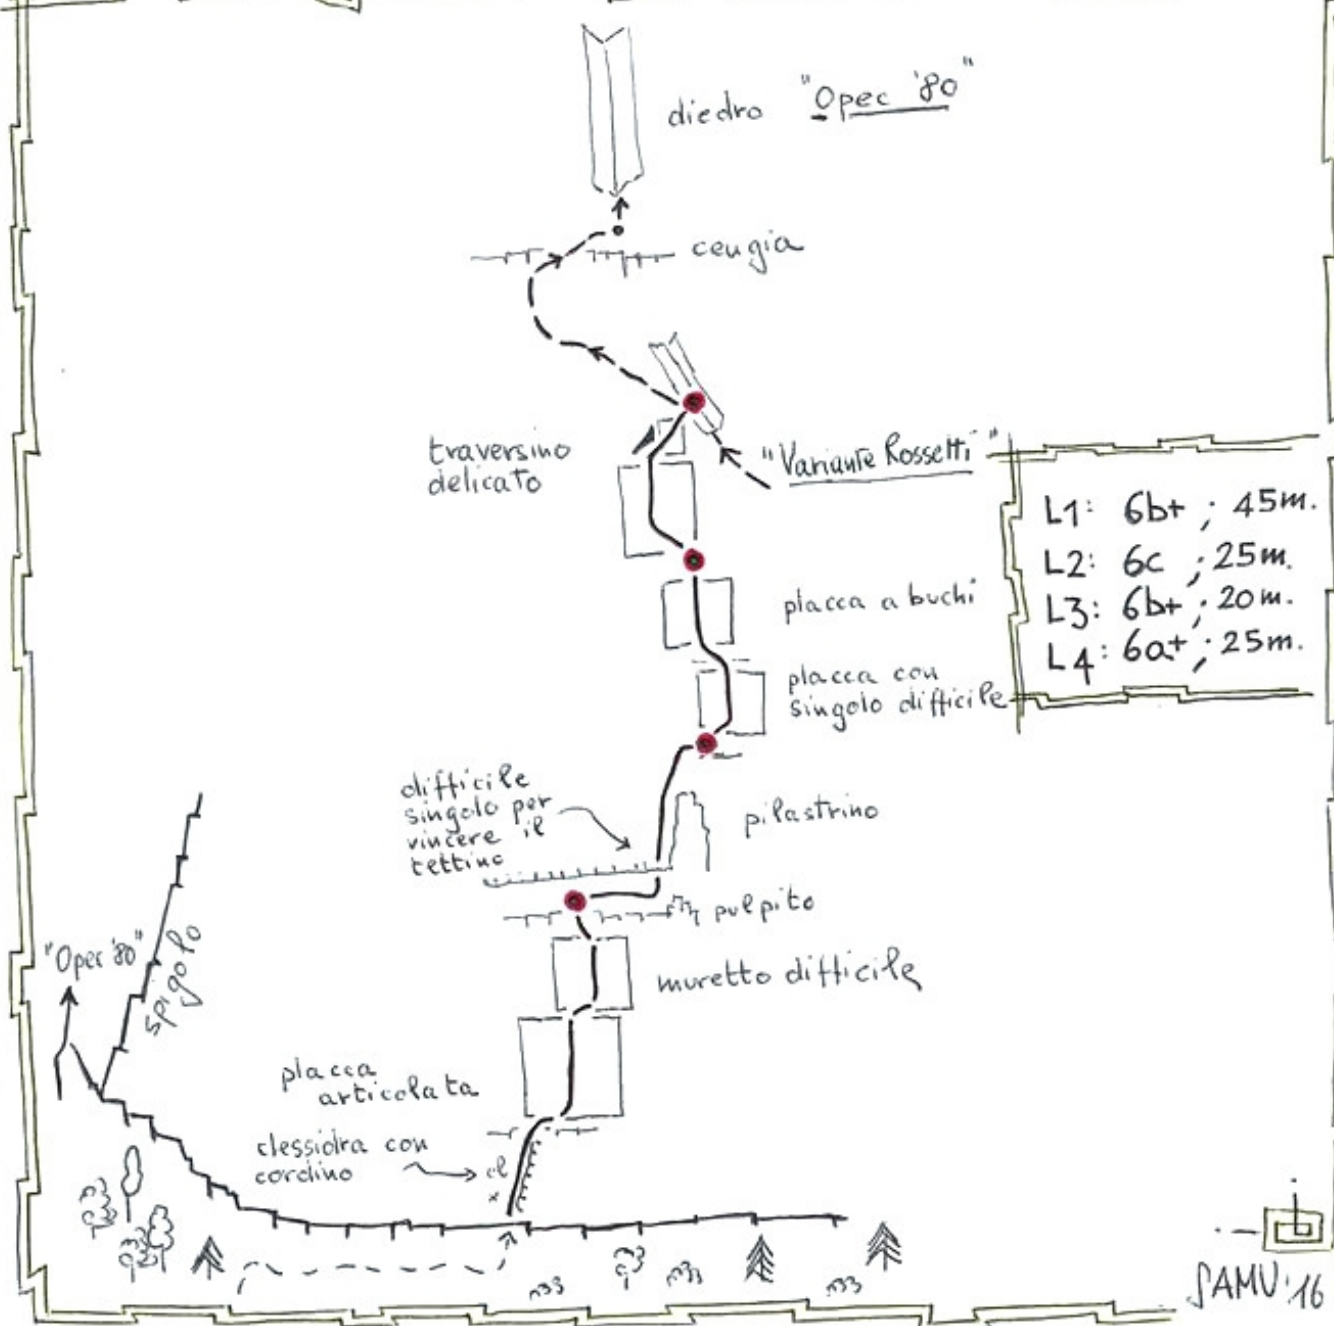 diedro "Opec '80"
cengia
traversino
delicato
"Variante Rossetti"
L1: 6b+ ; 45m.
L2: 6c ; 25m.
L3: 6b+ ; 20m.
L4: 6a+ ; 25m.
placca a buchi
placca con
singolo difficile
difficile
singolo per
vincere il
tettino
pilastrino
pulpito
"Opec '80"
spigolo
muretto difficile
placca
articolata
clessidra con
cordino
cl
x
SAMU '16